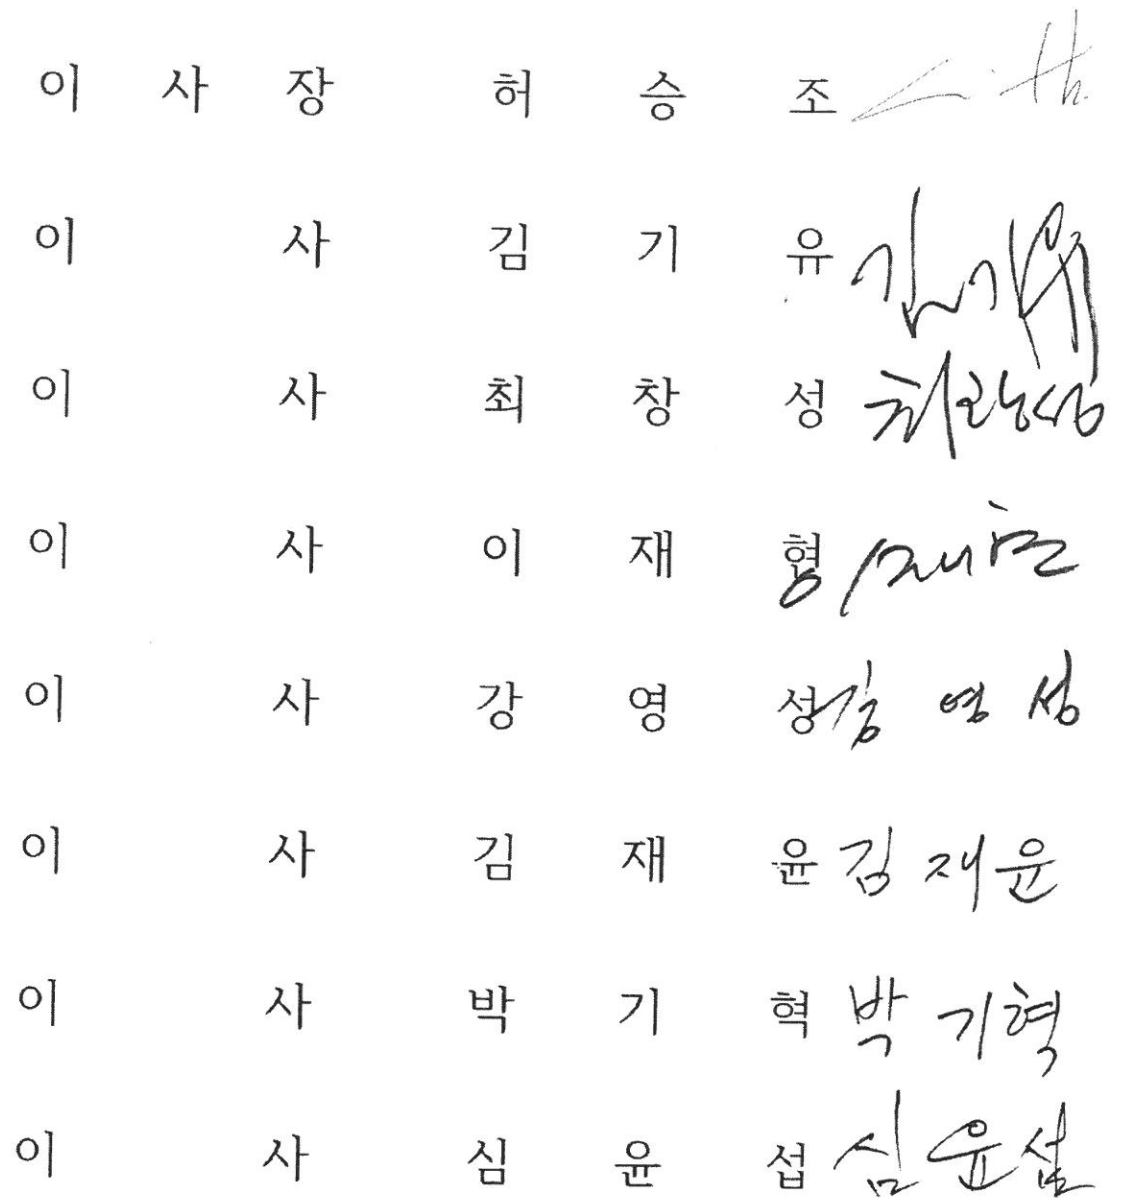 이 사 장 허 승 조
이 사 김 기 유 김기유
이 사 최 창 성 최창성
이 사 이 재 형
이 사 강 영 성 강 영 성
이 사 김 재 윤 김 재 윤
이 사 박 기 혁 박 기 혁
이 사 심 윤 섭 심 윤 섭